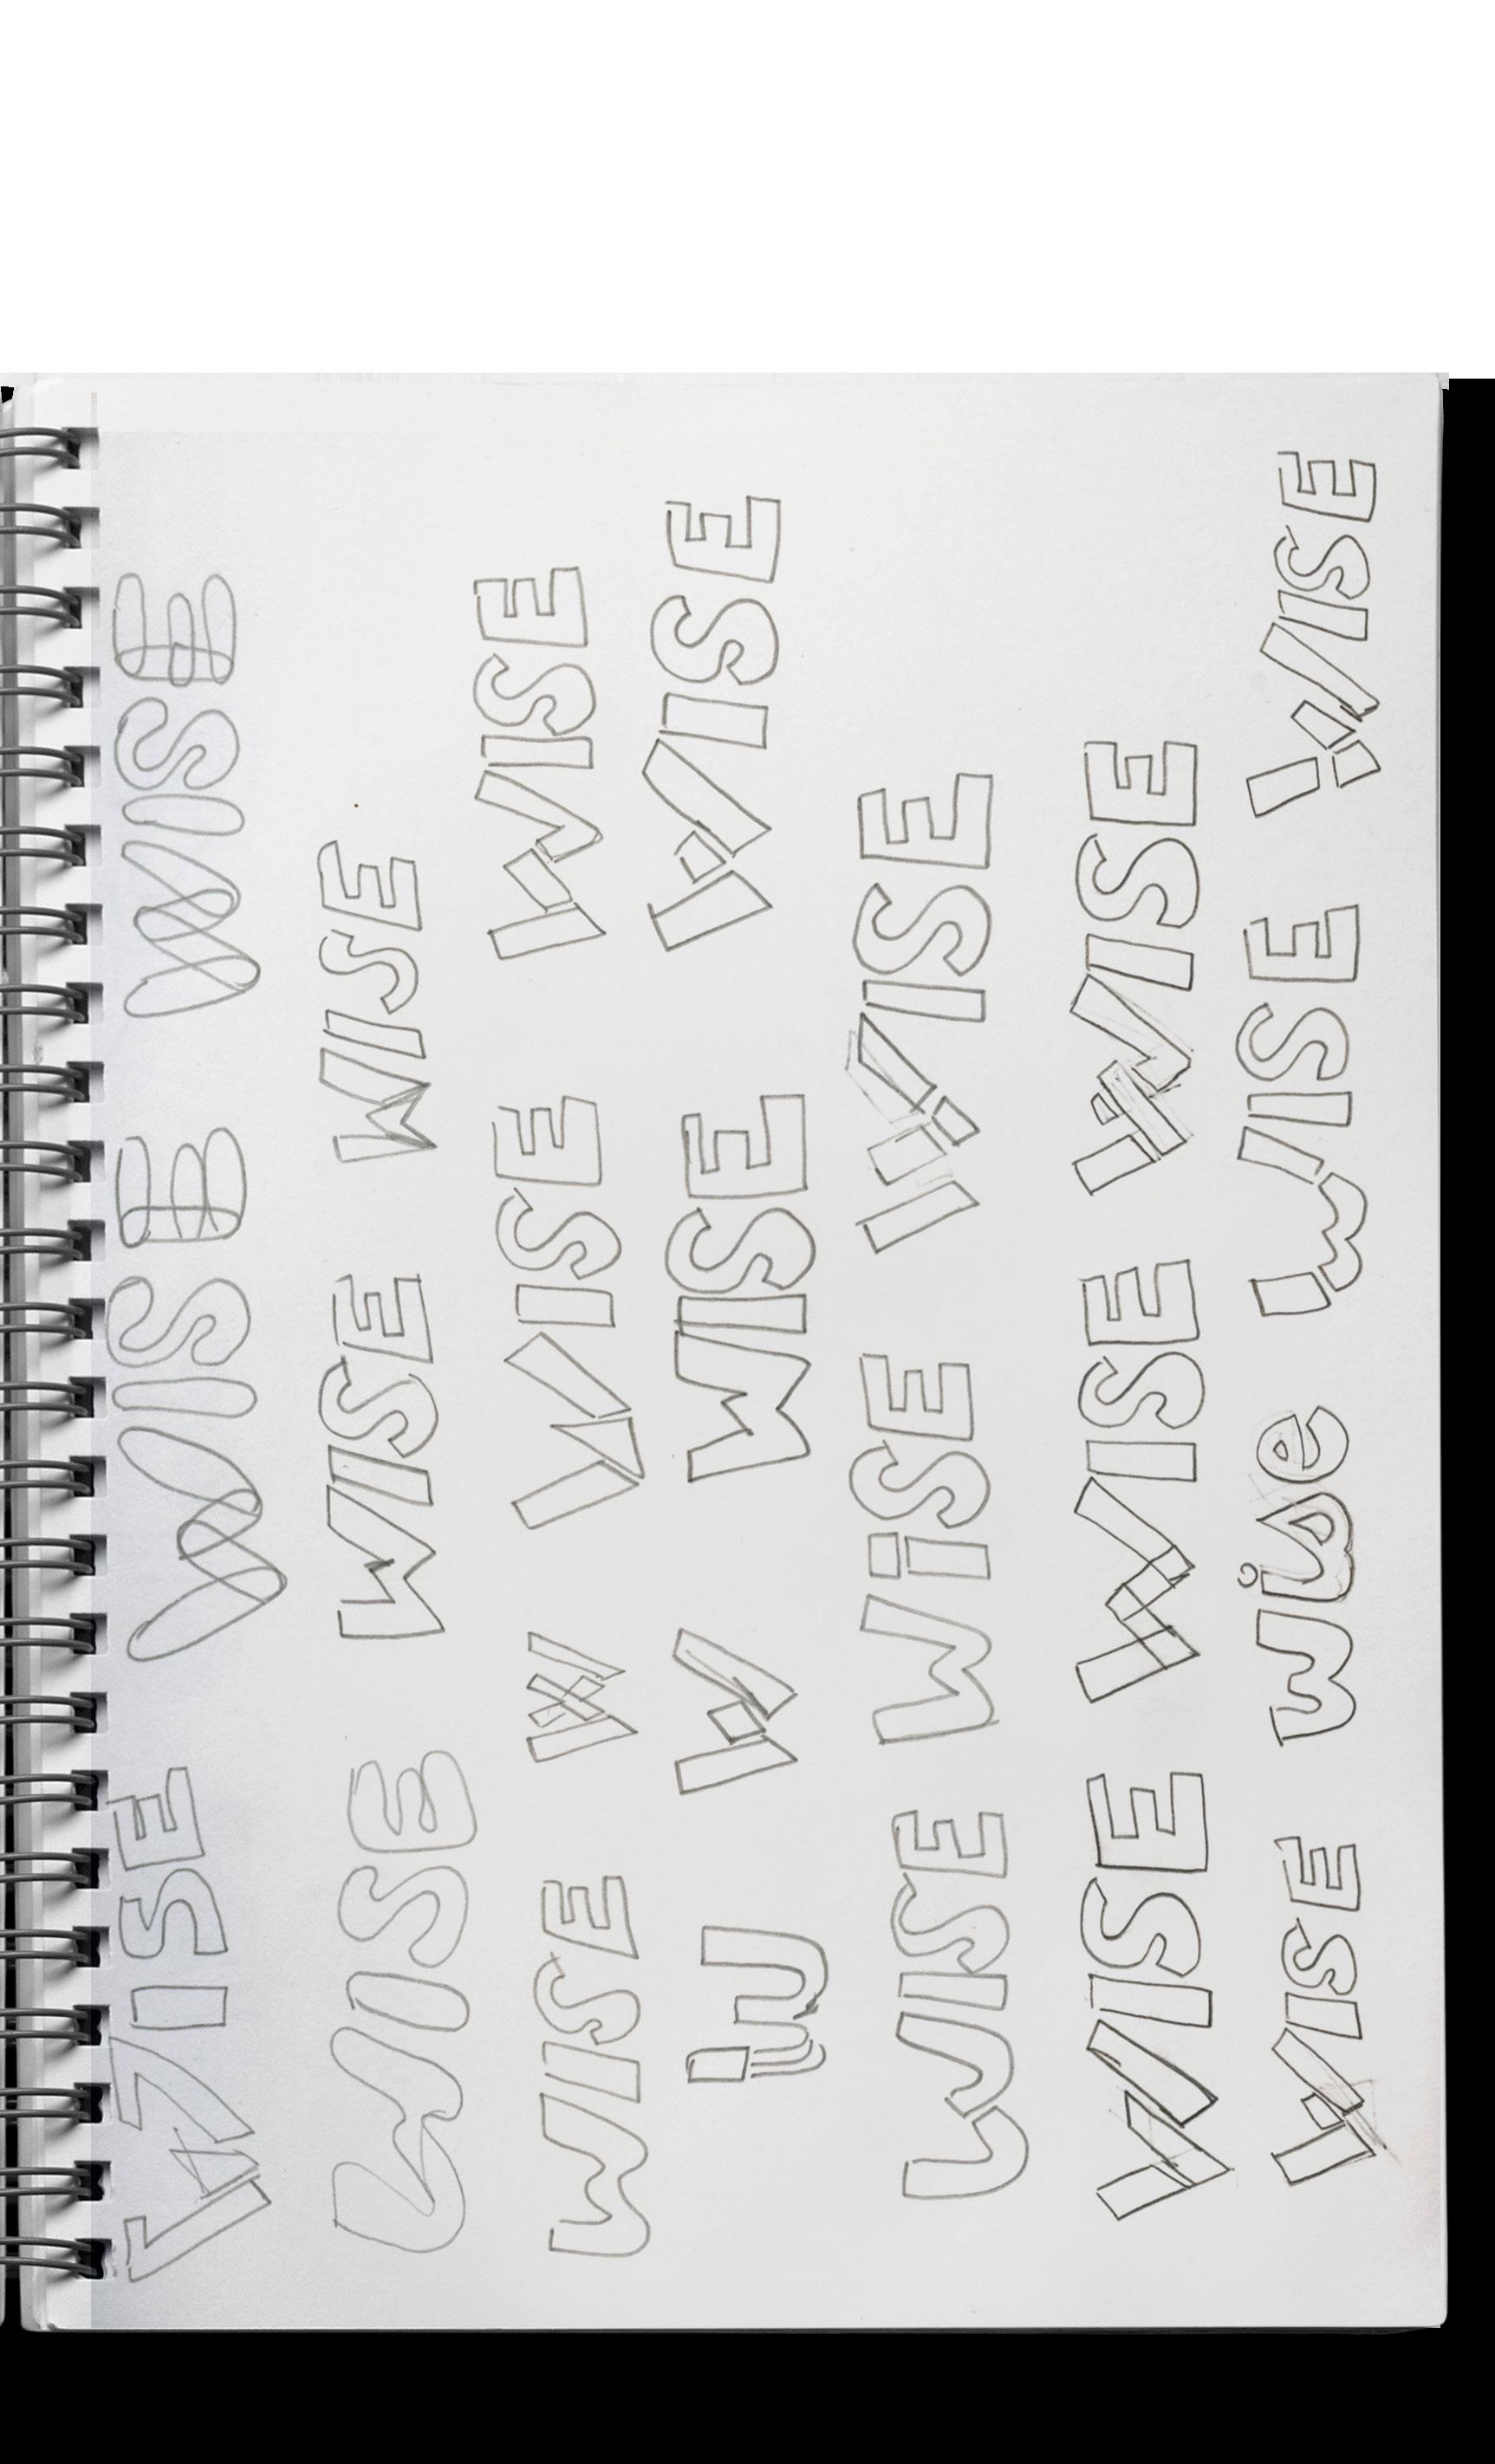 WISE WISE WISE
WISE WISE WISE
WISE W WISE WISE
W W WISE WISE
WISE WiSE WISE
WISE WISE WISE
WISE wise WISE WISE